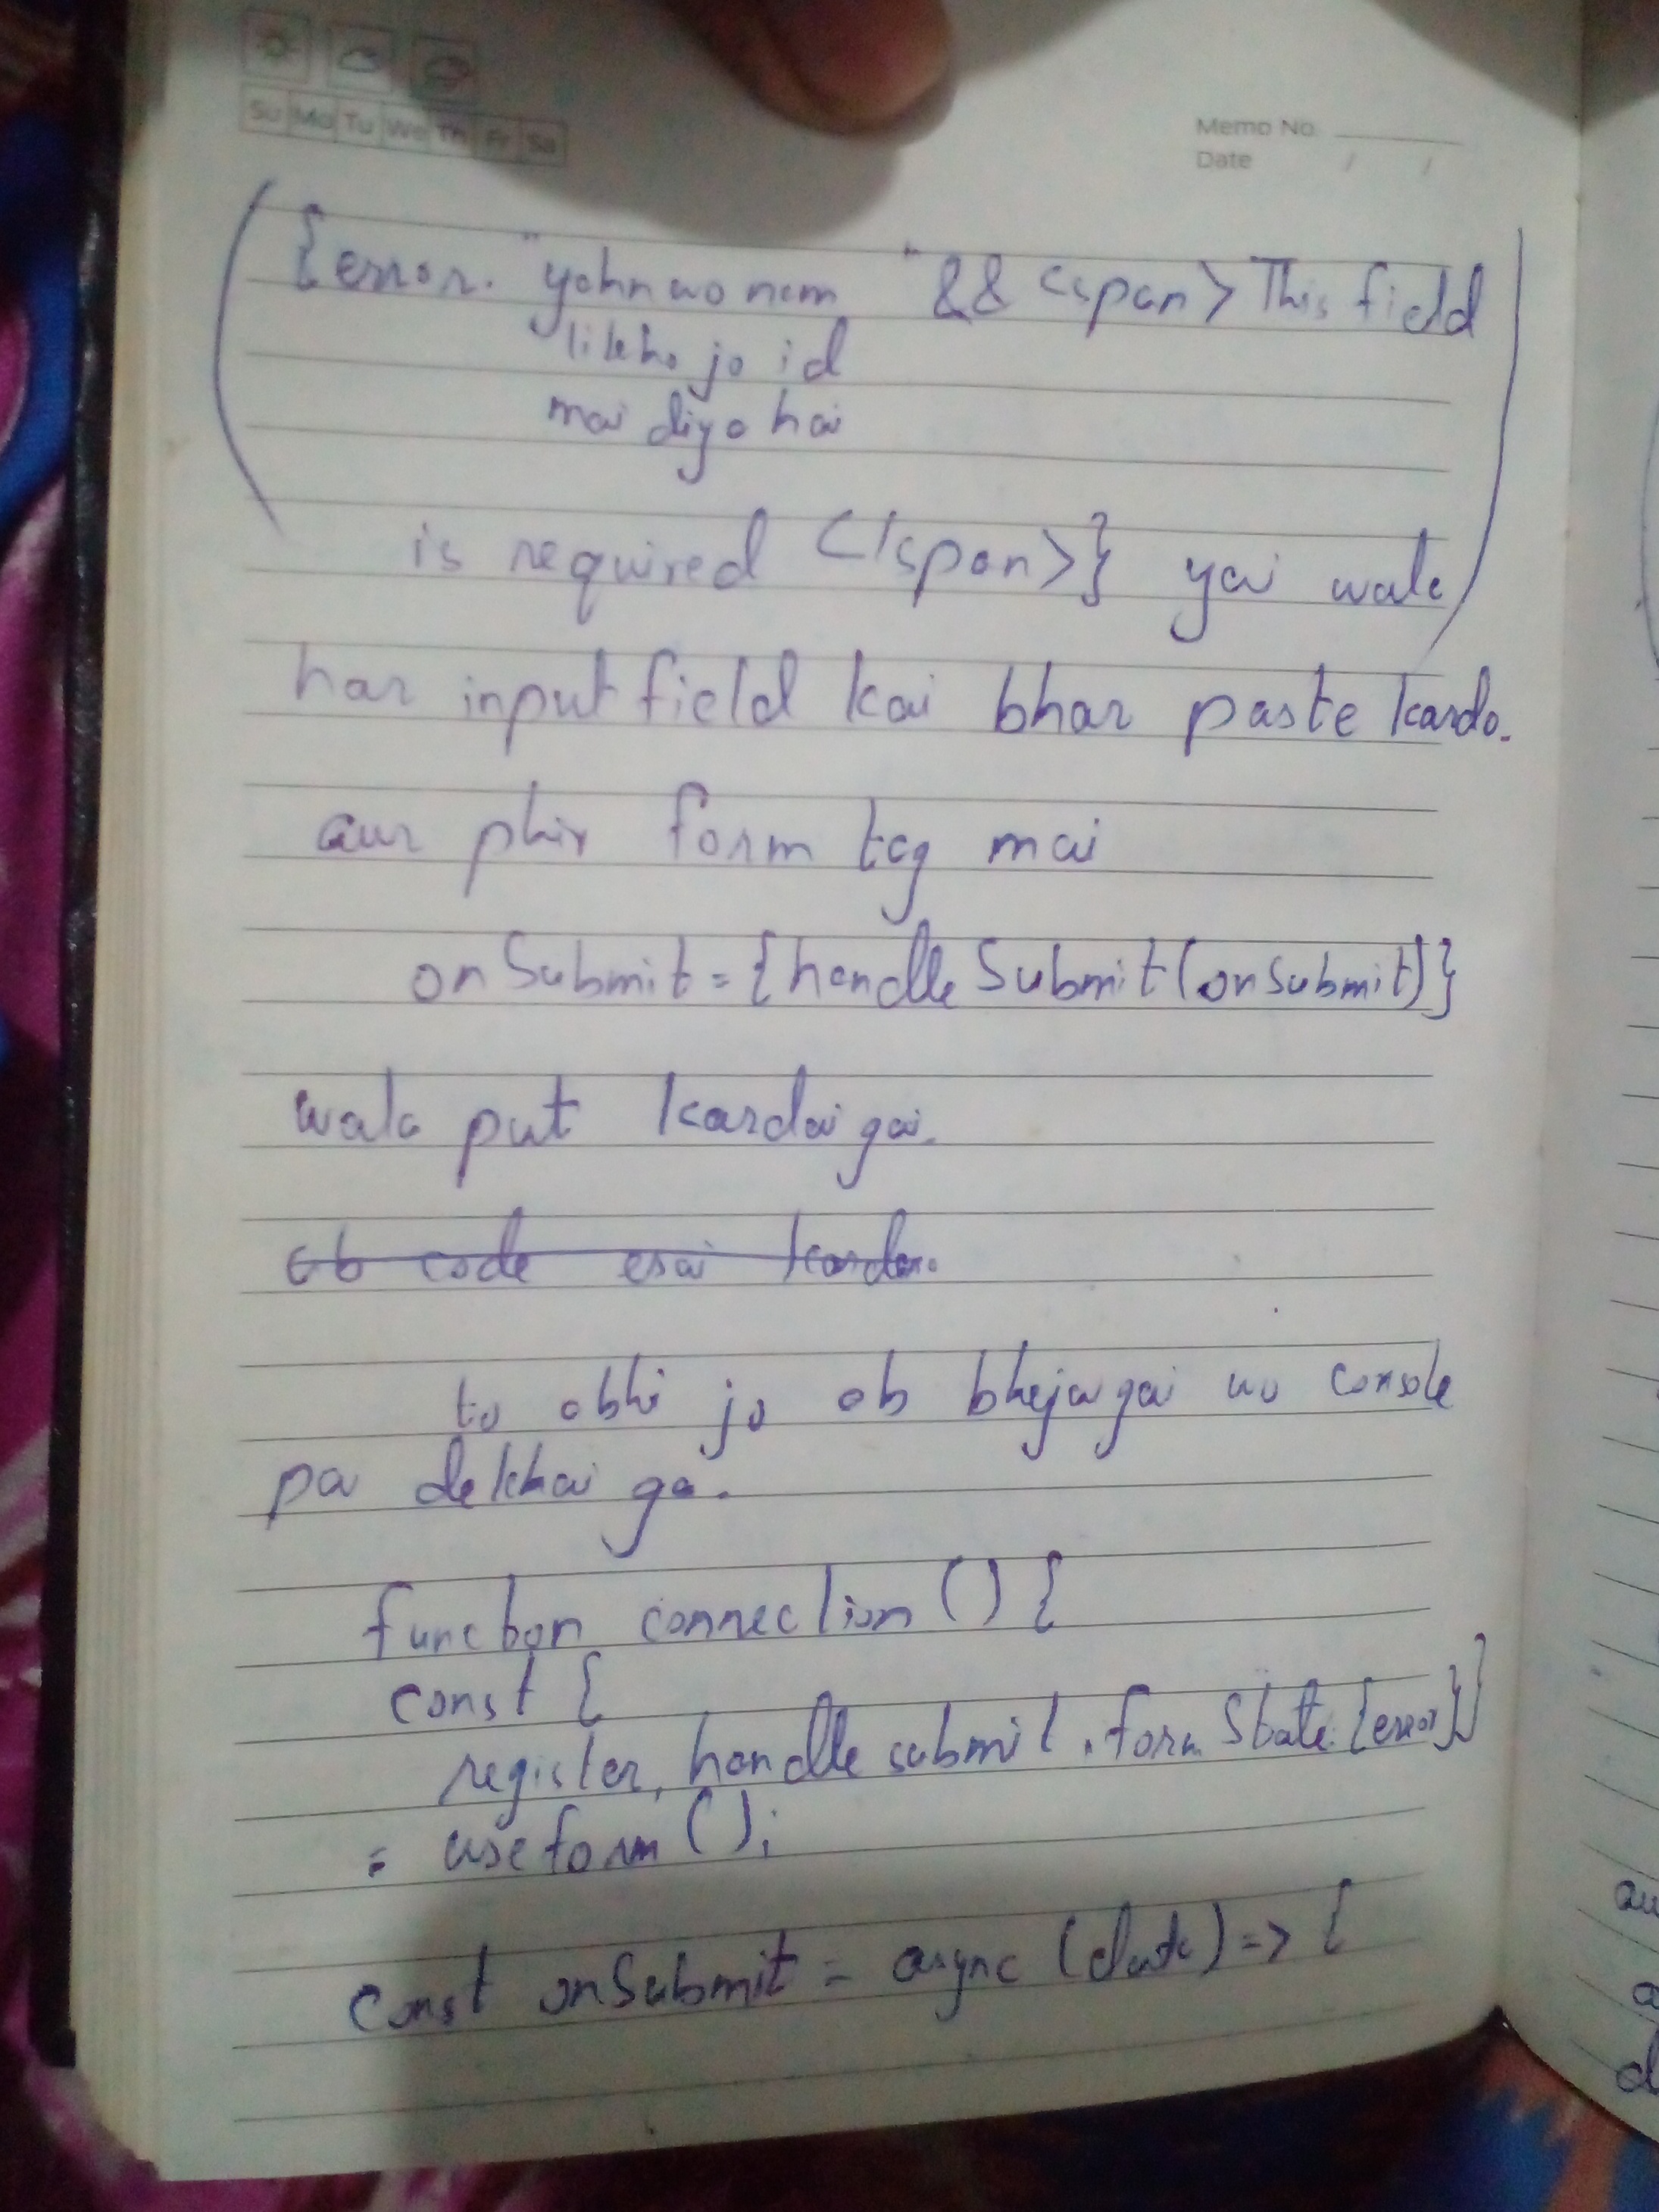 Su Mo Tu We Th Fr Sa
Memo No.
Date / /
{error. "yahn wo nam " && <span> This field
likho jo id
mai diya hai
is required </span>} yai wala
har input field kai bhar paste kardo.
aur phir form tag mai
onSubmit={handleSubmit(onSubmit)}
wala put kardai gai.
ab code esai kardo.
to abhi jo ab bhejaigai wo console
pa dekhai ga.
function connection () {
const {
register, handlesubmit, formState:{error}}
= useform ();
const onSubmit = async (data) => {
au
a
d